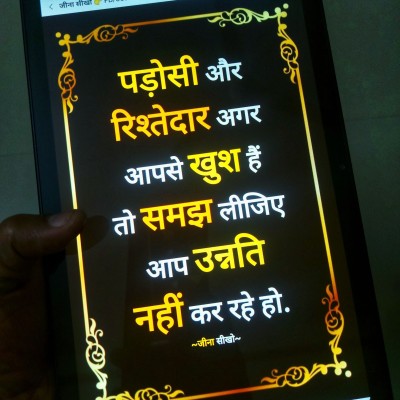 जीना सीखो
पड़ोसी और
रिश्तेदार अगर
आपसे खुश हैं
तो समझ लीजिए
आप उन्नति
नहीं कर रहे हो.
~जीना सीखो~